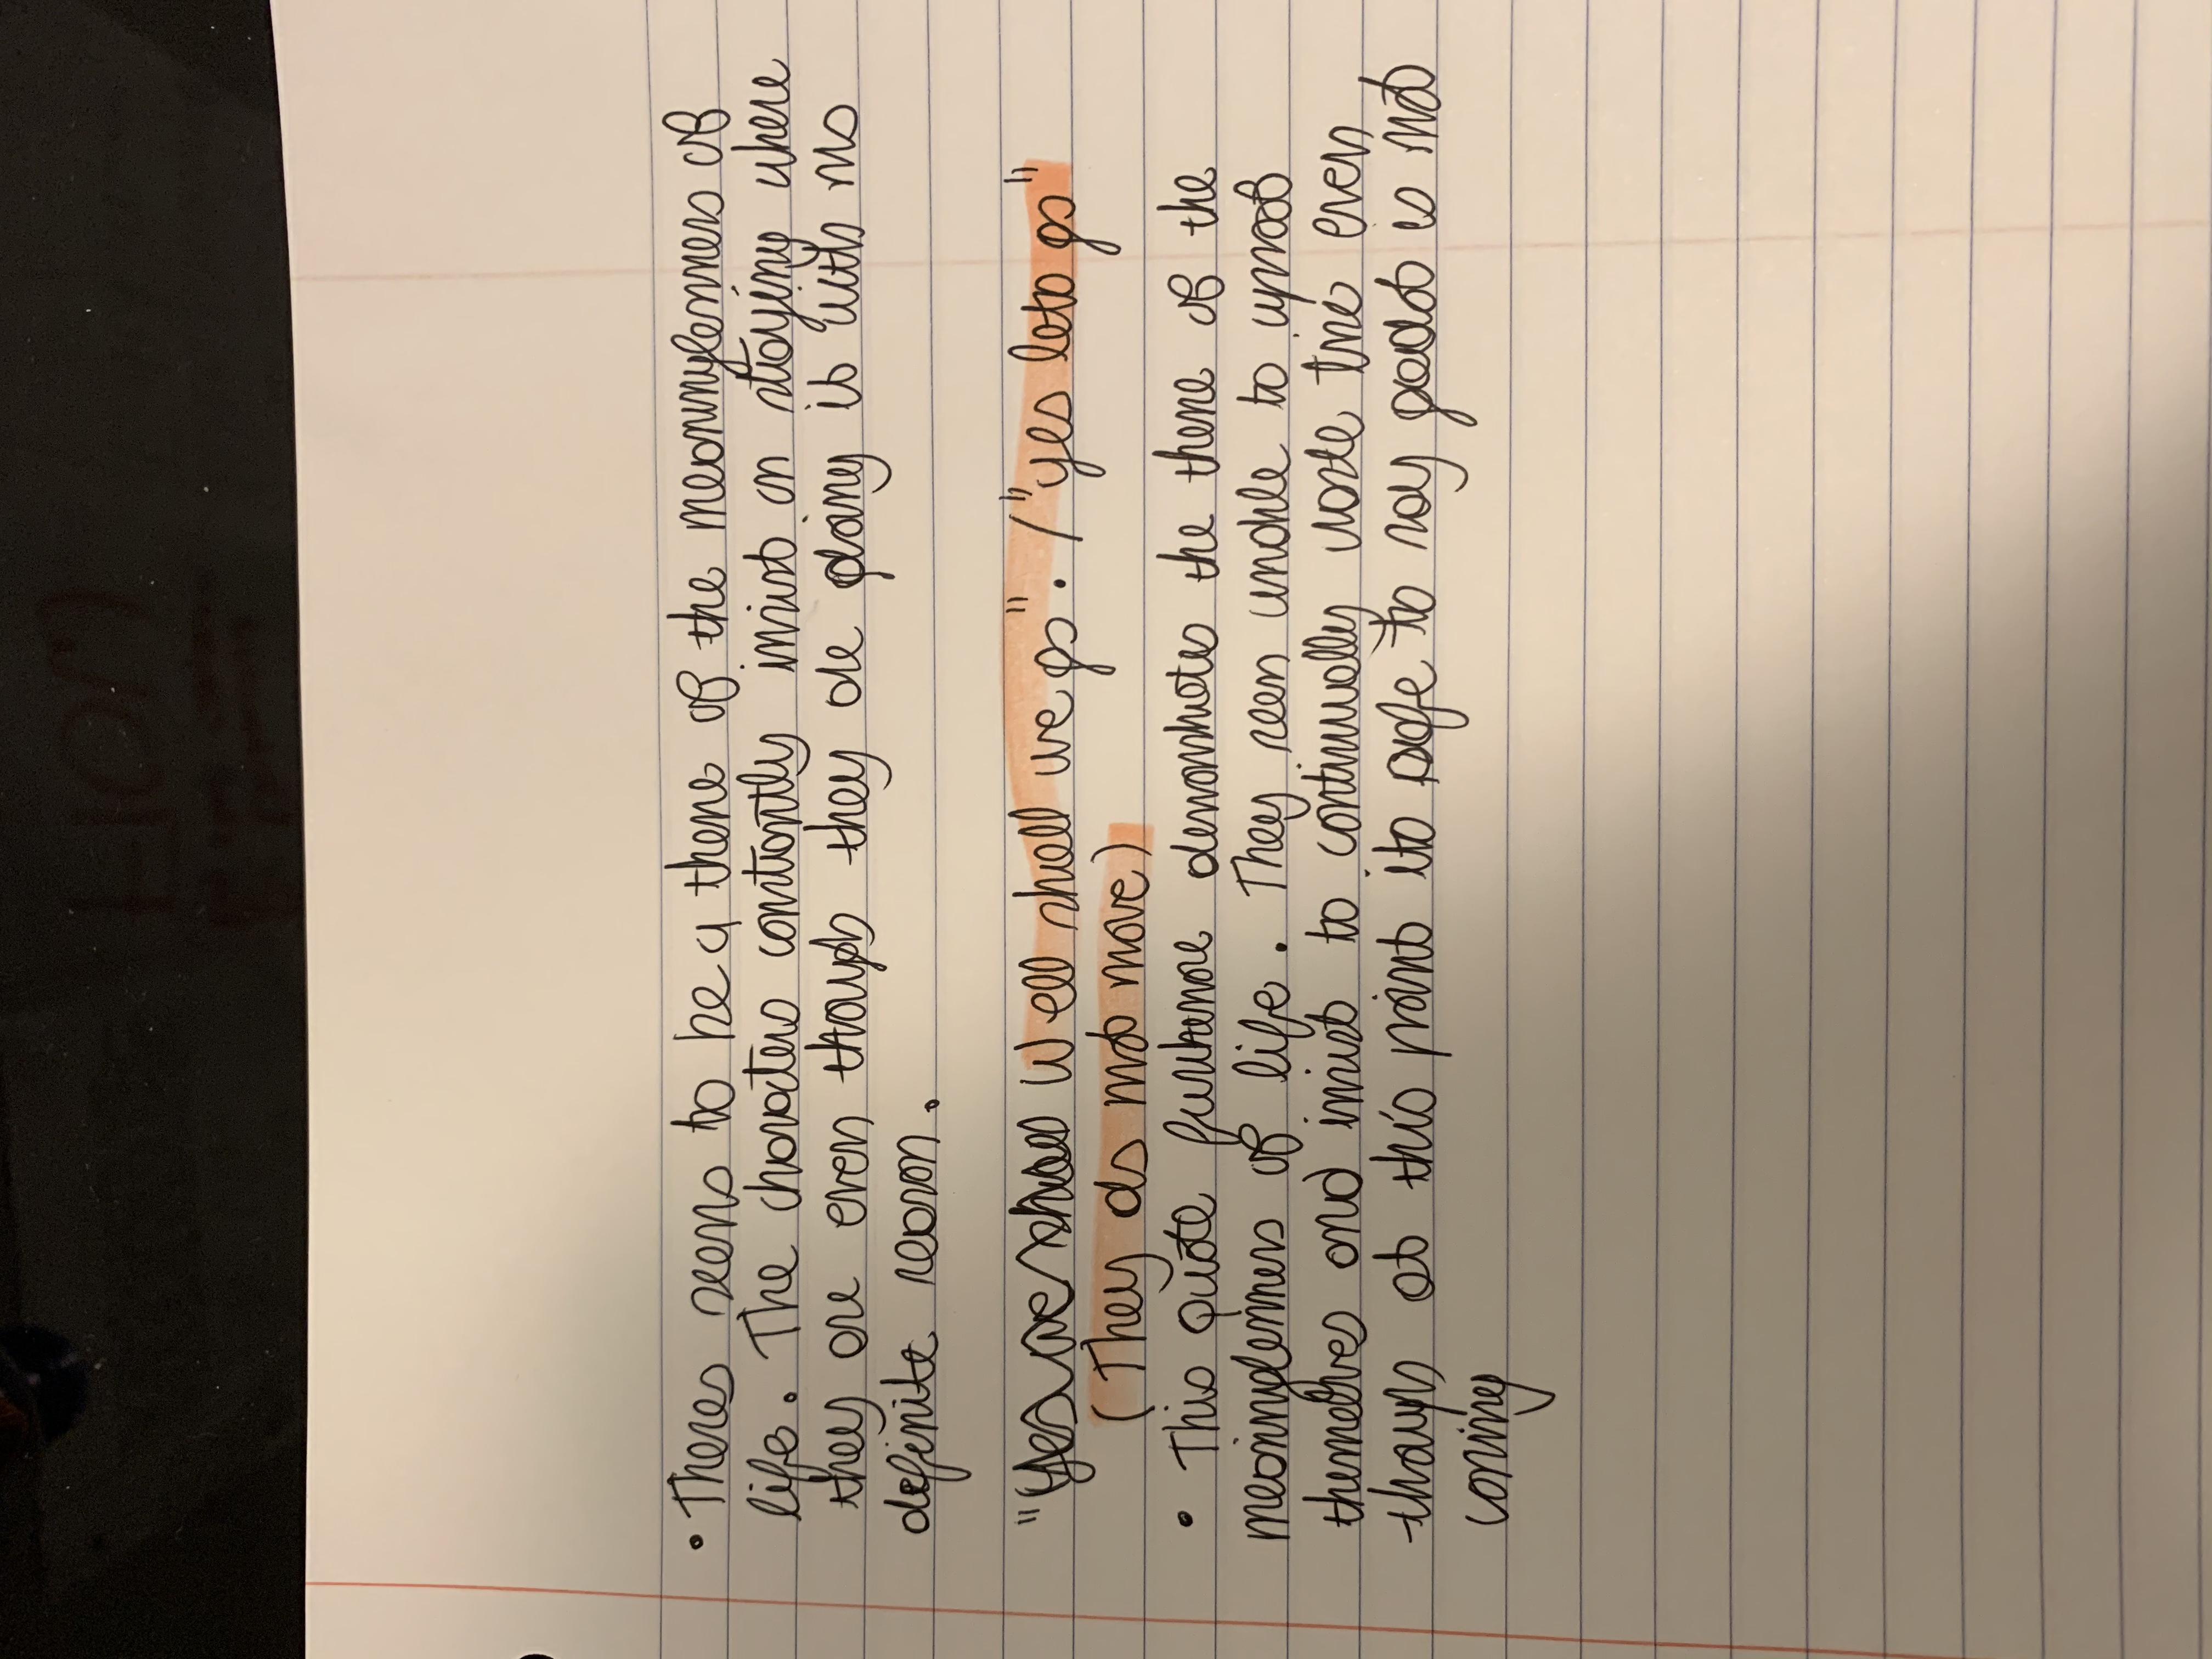 • Theres seems to be a theme of the meaninglessness of
life. The characters constantly insist on staying where
they are even though they are doing it with no
definite reason.
"Yes we shall Well shall we go". / "yes lets go"
(They do not move)
• This quote furthermore demonstrates the theme of the
meaninglessness of life. They seem unable to uproot
themselves and insist to continually waste time even
though at this point its safe to say godot is not
coming